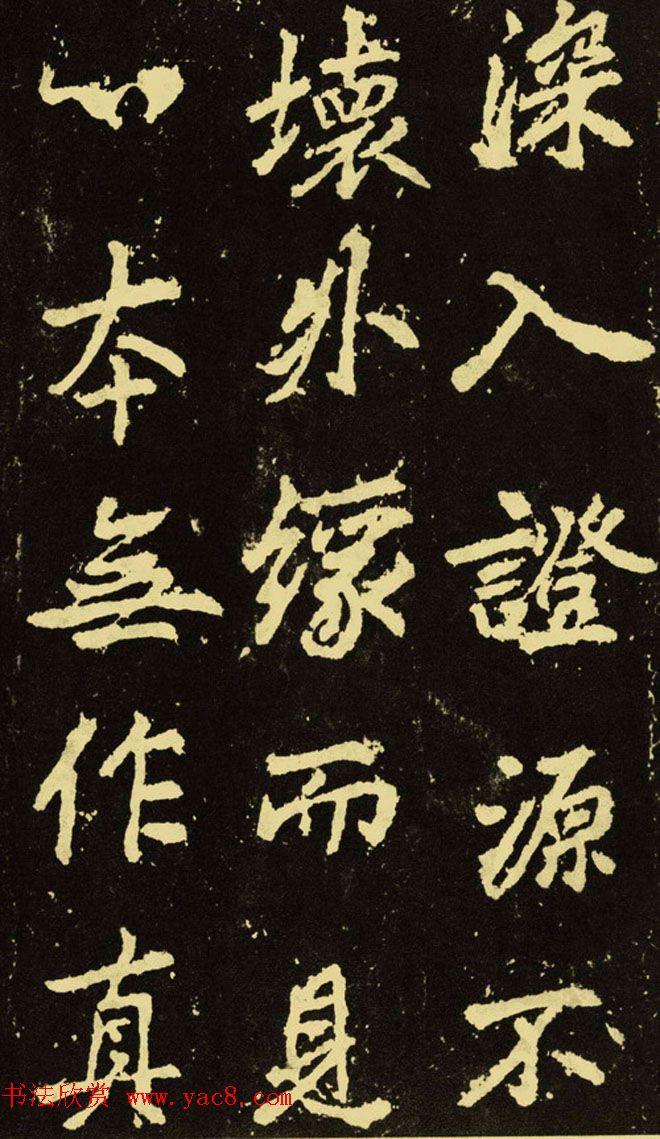 深入證源不
壞外緣而見
心本無作真
书法欣赏 www.yac8.com